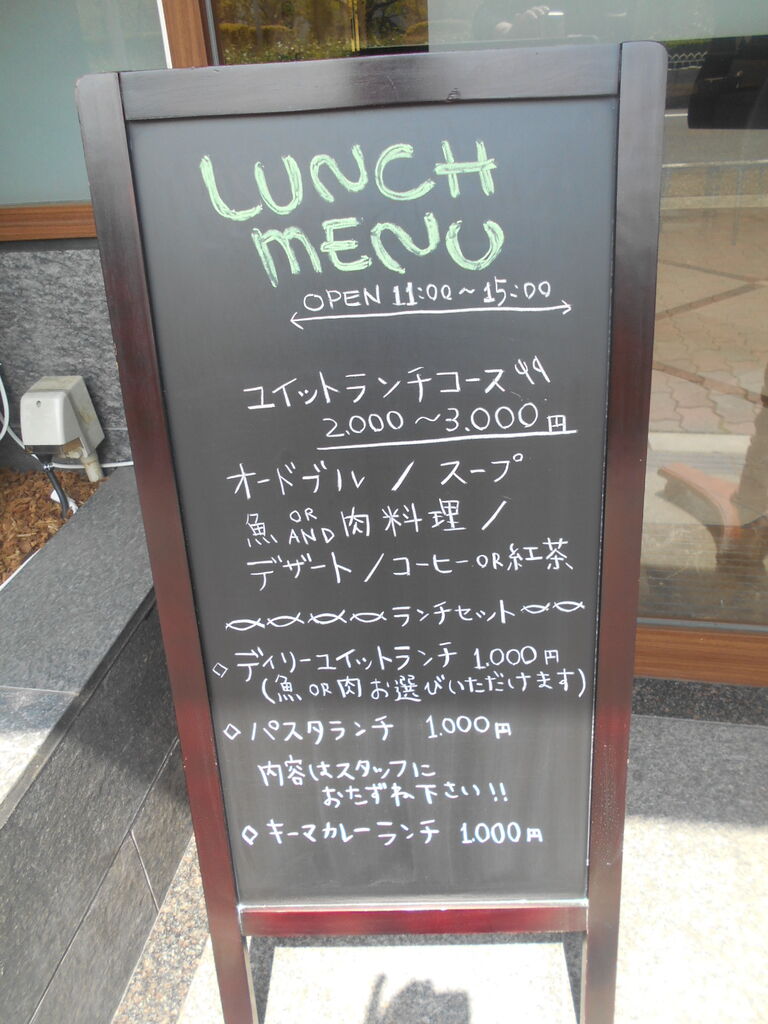 LUNCH
MENU
OPEN 11:00~15:00
ユイットランチコース
2.000~3.000円
オードブル / スープ
魚 OR AND 肉料理 /
デザート / コーヒー OR 紅茶
ランチセット
◇ ディリーユイットランチ 1.000円
(魚 OR 肉 お選びいただけます)
◇ パスタランチ 1.000円
内容はスタッフに
おたずね下さい!!
◇ キーマカレーランチ 1.000円